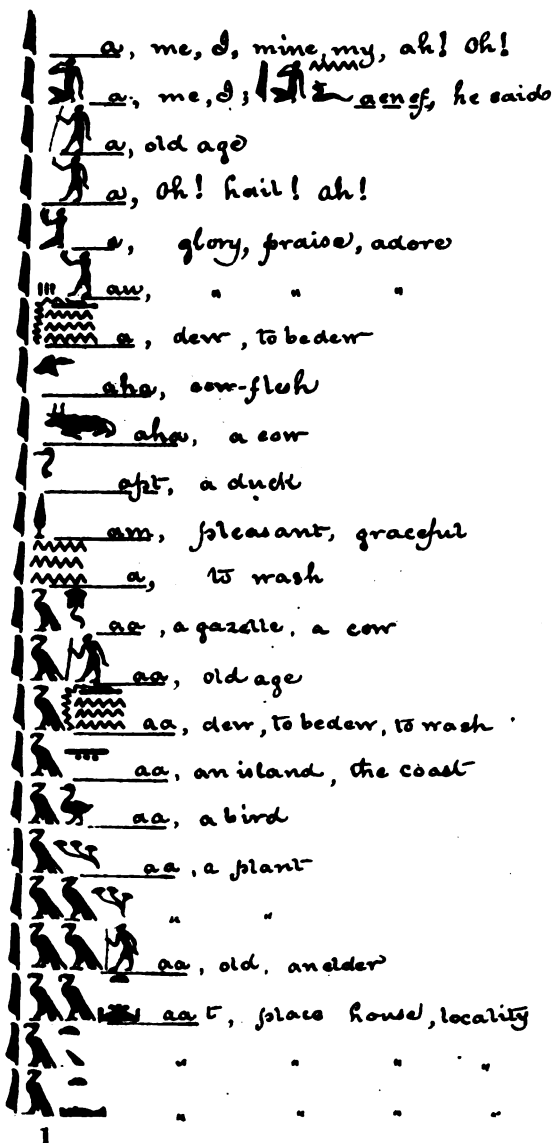 a, me, I, mine, my, ah! Oh!
a, me, I; aenef, he said
a, old age
a, Oh! hail! ah!
a, glory, praise, adore
au, " " "
a, dew, to bedew
aha, cow-flesh
aha, a cow
apt, a duck
am, pleasant, graceful
a, to wash
aa, a gazelle, a cow
aa, old age
aa, dew, to bedew, to wash
aa, an island, the coast
aa, a bird
aa, a plant
" "
aa, old, an elder
aat, place house, locality
" " " "
" " " "
1